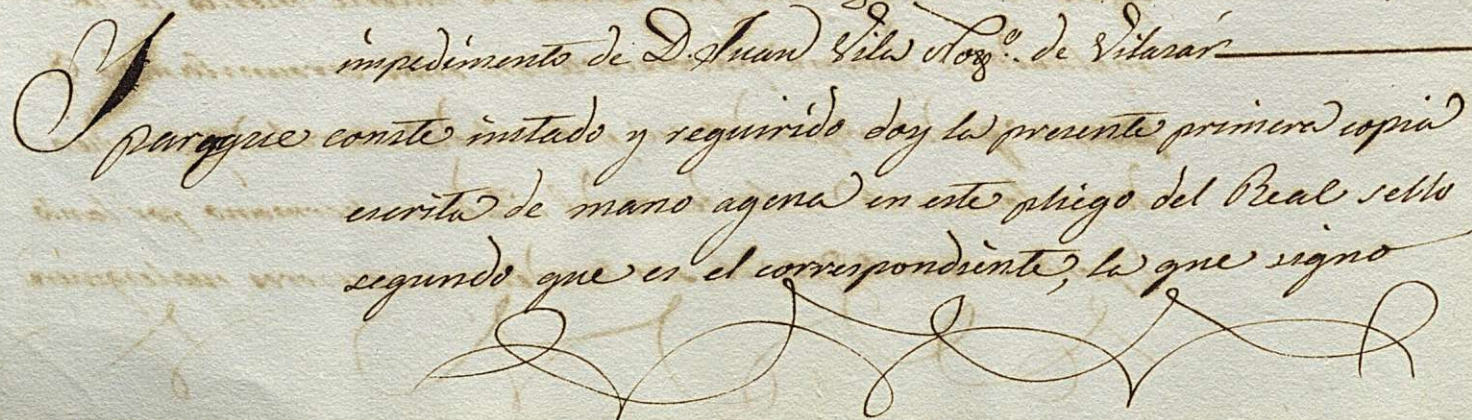 impedimento de D. Juan Vila Nog.º de Vilasár
Y paraque conste instado y requirido doy la presente primera copia
escrita de mano agena en este pliego del Real sello
segundo que es el correspondiente, la que signo